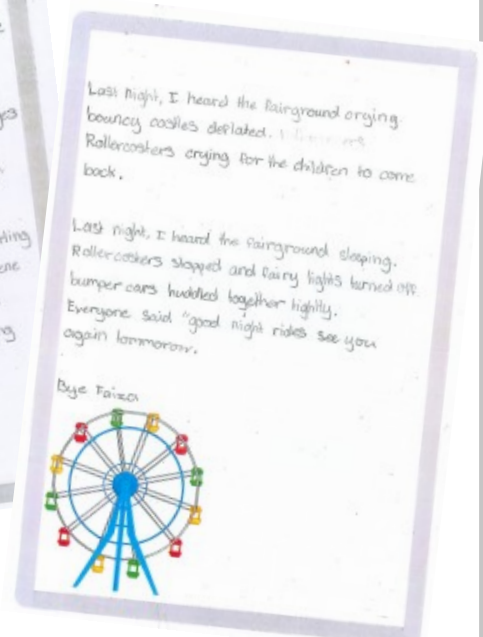 Last night, I heard the fairground crying.
bouncy castles deflated.
Rollercosters crying for the children to come
back.
Last night, I heard the fairground sleeping.
Rollercosters stopped and fairy lights turned off.
bumper cars huddled together tightly.
Everyone said "good night rides see you
again tommorow.
Bye Faiza